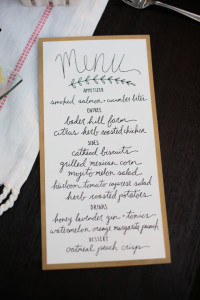 Menu
APPETIZER
smoked salmon + cucumber bites
ENTREE
bader hill farm
citrus herb roasted chicken
SIDES
cathead biscuits
grilled mexican corn
mojito melon salad
heirloom tomato caprese salad
herb roasted potatoes
DRINKS
honey lavender gin + tonics
watermelon orange margarita punch
DESSERT
oatmeal peach crisp